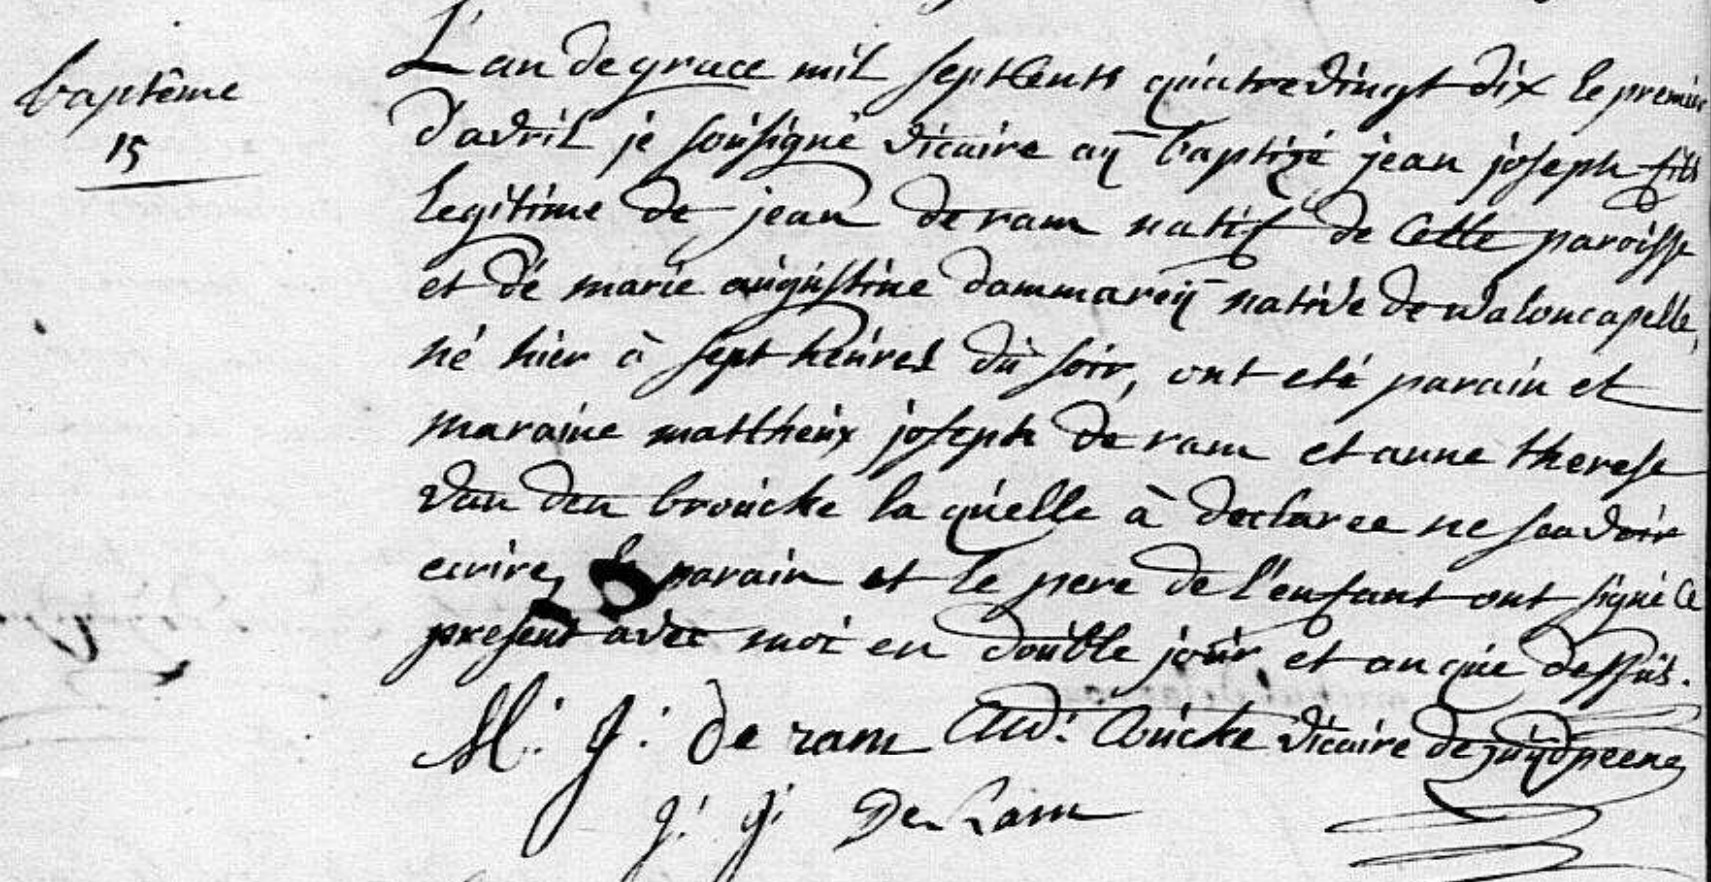 baptême
15
L'an de grace mil septcents quatrevingt dix le premier
d'avril je sousigné vicaire aÿ baptizé jean joseph fils
legitime de jean de ram natif de cette paroisse
et de marie augustine dammareÿ native de waloncapelle,
né hier à sept heures du soir, ont eté parain et
maraine matthieux joseph de ram et anne therese
van den broucke la quelle à declaree ne scavoir
ecrire, le parain et le pere de l'enfant ont signé ce
present avec moi en double jour et an que dessus.
M: J: De ram Aud: Coucke vicaire de zuÿdpeene
J: J: De Ram